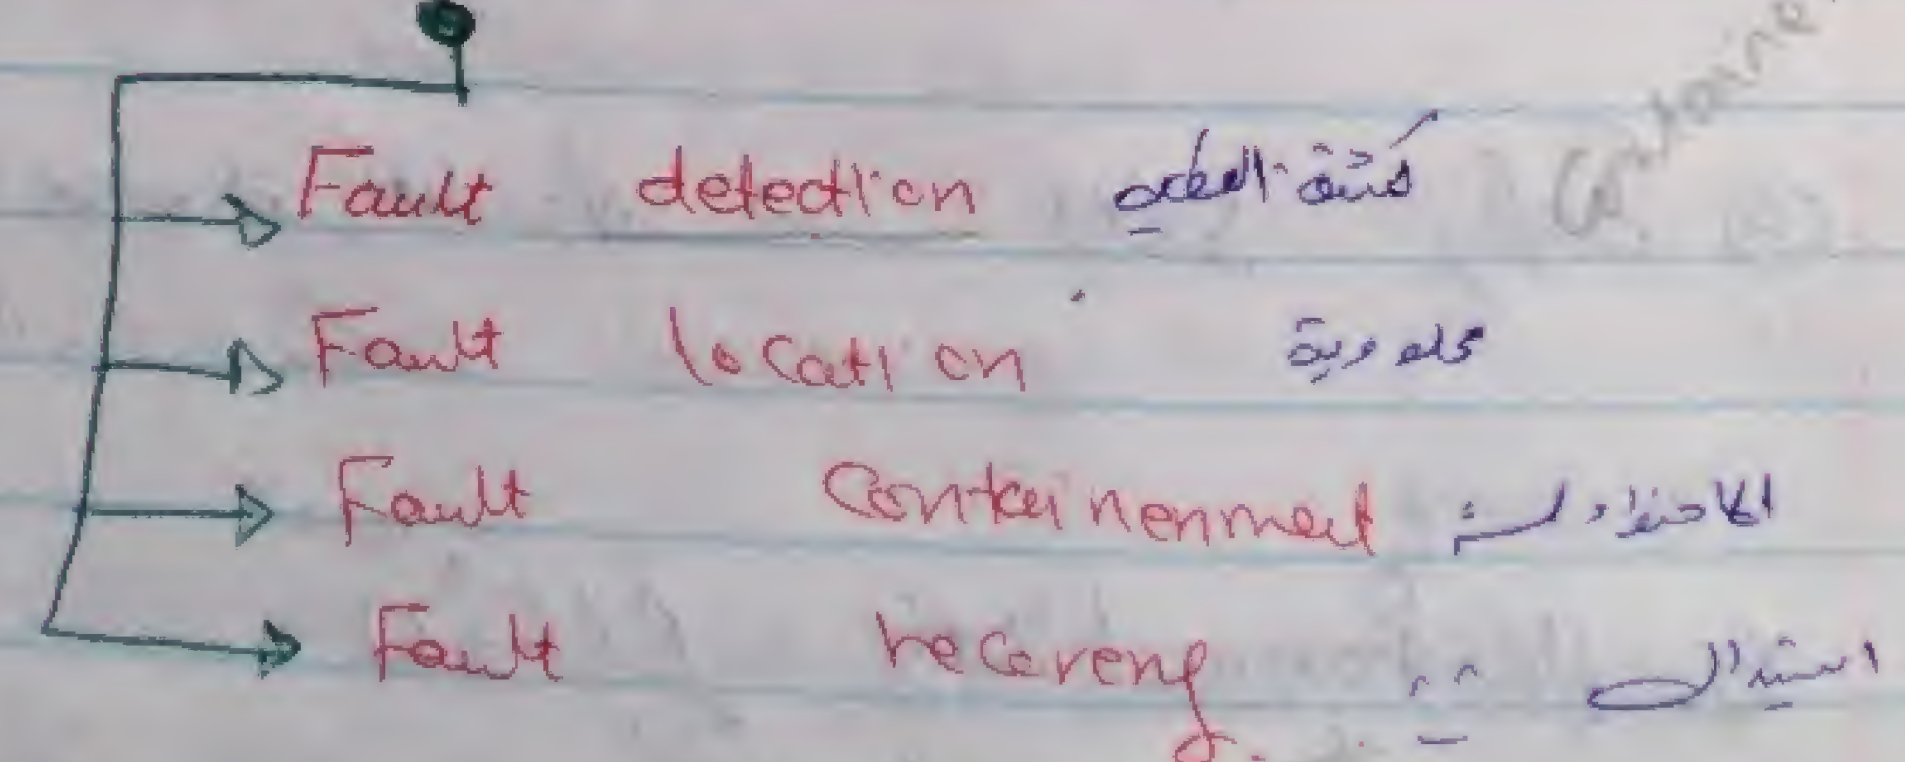 Fault detection كشف العطب
Fault location
Fault Containenment
Fault recovery استبدال